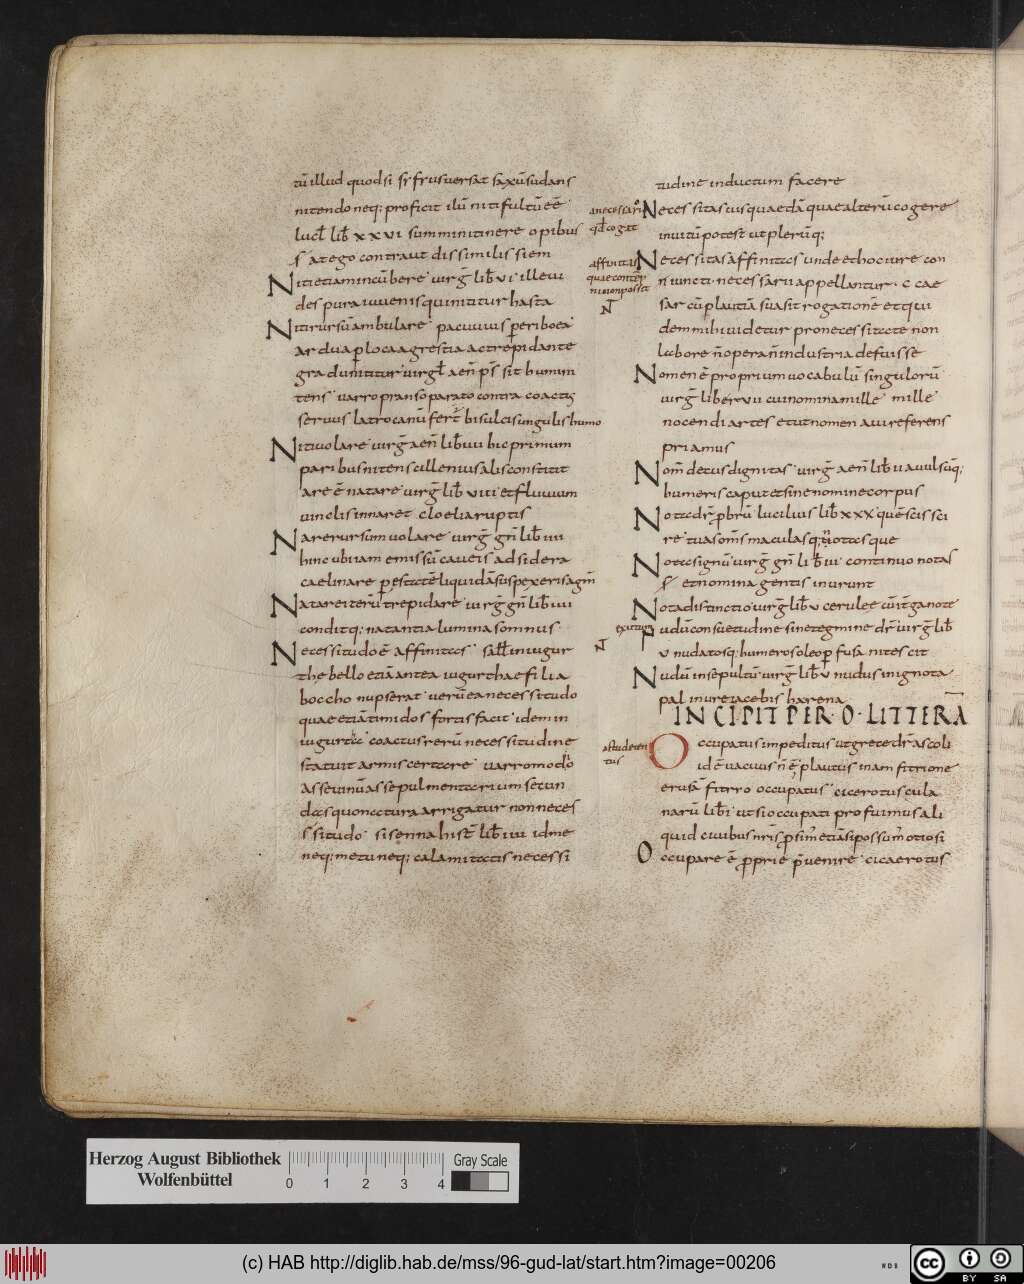 tū illud quod si sẏsyfus uersat saxū sudans
nitendo neq; proficit ilū niti fultū eē
lucł lib̄ xxvi summi nitinere opibus
s at ego contra ut dissimilis siem
Niti etiam incūbere uirḡ lib̄ vi ille ui
des pura iuuenis qui nititur hasta
Niti rursū ambulare pacuuius periboea
ardua p loca agrestia ac trepidante
gradu nititur uirgł aen̄ p̄s sit humin
tens uarro pranso parato contra coactȷ
seruus latrocanū fert bisulcis ungulis humo
Niti uolare uirḡ aen̄ lib̄ iiii hic primum
paribus nitens cillenius alis constitit
are ē natare uirḡ lib̄ viii et fluuium
uinclis innaret cloelia ruptis
Nare rursum uolare uirḡ gn̄ lib̄ iiii
hinc ubi iam emissū caueis ad sidera
caeli nare p estatē liquidā suspexeris agm̄
Natare iterū trepidare uirḡ gn̄ lib̄ iiii
conditq; natantia lumina somnus
Necessitudo ē affinitas sall̄ in iugur
the bello etiā antea iugurthae filia
boccho nupserat uerū ea necessitudo
quae etiā timidos fortis facit idem in
iugurta coactus rerū necessitudine
statuit armis certare uarro modo
asse uinū asse pulmentarium secun
das quo natura arrigatur non neces
situdo sisenna hist̄ lib̄ iiii idme
neq; metu neq; calamitatis necessi
a necessari
qđ cogit
affinitas
quae contēp
ni non possit
tudine inductum facere
Necessitas uis quaedā quae alterū cogere
inuitū potest ut plerūq;
Necessitas affinitas unde et hoc iure con
iuncti necessarii appellantur c cae
sar cū plautiā suasit rogationē et qui
dem mihi uidetur pro necessitate non
labore n̄ opera n̄ industria defuisse
Nomen ē proprium uocabulū singulorū
uirḡ liber vii cui nomina mille mille
nocendi artes et ut nomen aui referens
priamus
Nom̄ decus dignitas uirḡ aen̄ lib̄ ii auulsūq;
humeris caput et sine nomine corpus
Nota dr̄ p̄brū lucilius lib̄ xxx quē scis sci
re tuas om̄s maculasq; notasque
Nota signū uirḡ gn̄ lib̄ iii continuo notas
et nomina gentis inurunt
Nota distinctio uirḡ lib̄ v cerulee cui tēga note
exutum
Nudū consuetudine sine tegmine dr̄ uirḡ lib̄
v nudatosq; humeros oleo p fusa nitescit
Nudū insepultū uirḡ lib̄ v nudus in ignota
palinure iacebis harena
INCIPIT PER·O·LITTERĀ
a studeren
tus
Occupatus impeditus ut grece dr̄ ascoli
id ē uacuus n̄ ē plautus in amfitrione
erusā fitrro occupatus cicero tuscula
narū lib̄ i ut si occupati profuimus ali
quid ciuibus nr̄is p̄simˀ etiā si possumˀ otiosi
Occupare ē proprie p̄uenire cicaero tus
Herzog August Bibliothek
Wolfenbüttel
0 1 2 3 4
Gray Scale
(c) HAB http://diglib.hab.de/mss/96-gud-lat/start.htm?image=00206
WDB
CC BY SA